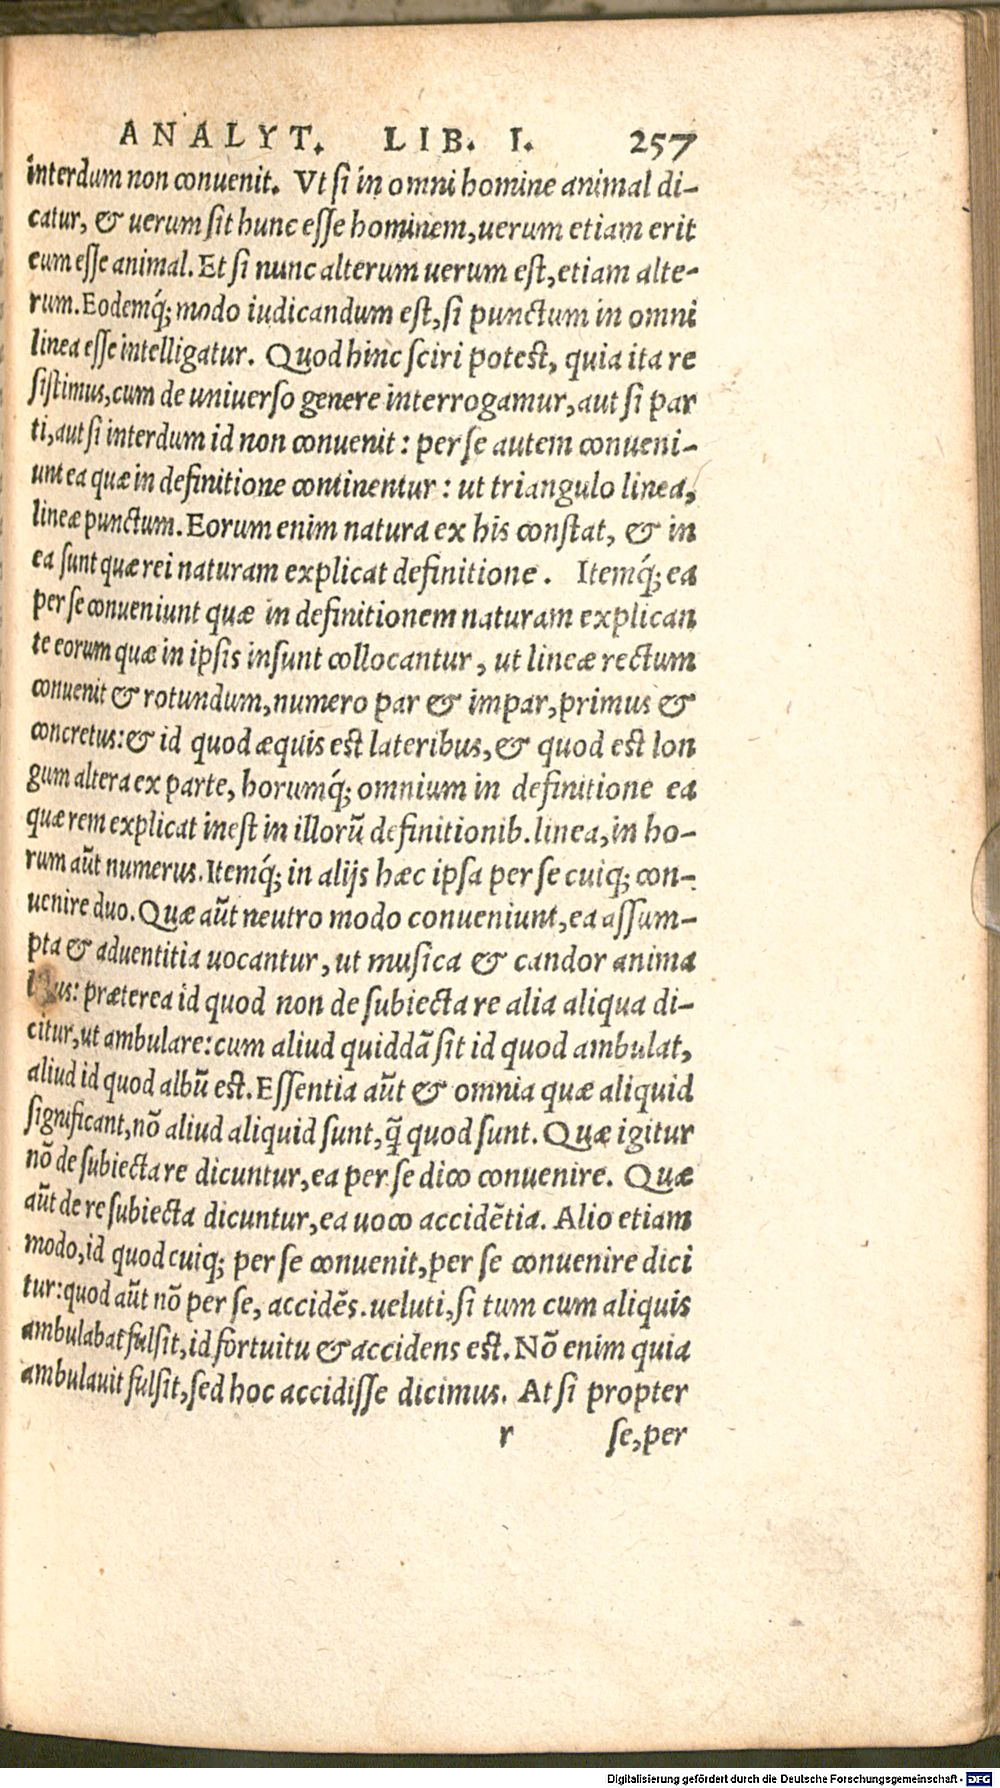 ANALYT. LIB. I. 257
interdum non conuenit. Vt si in omni homine animal di-
catur, & uerum sit hunc esse hominem, uerum etiam erit
eum esse animal. Et si nunc alterum uerum est, etiam alte-
rum. Eodemq́; modo iudicandum est, si punctum in omni
linea esse intelligatur. Quod hinc sciri potest, quia ita re
sistimus, cum de uniuerso genere interrogamur, aut si par
ti, aut si interdum id non conuenit: per se autem conueni-
unt ea quæ in definitione continentur: ut triangulo linea,
lineæ punctum. Eorum enim natura ex his constat, & in
ea sunt quæ rei naturam explicat definitione. Itemq́; ea
per se conueniunt quæ in definitionem naturam explican
te eorum quæ in ipsis insunt collocantur, ut lineæ rectum
conuenit & rotundum, numero par & impar, primus &
concretus: & id quod æquis est lateribus, & quod est lon
gum altera ex parte, horumq́; omnium in definitione ea
quæ rem explicat inest in illorũ definitionib. linea, in ho-
rum aũt numerus. Itemq́; in alijs hæc ipsa per se cuiq; con-
uenire duo. Quæ aũt neutro modo conueniunt, ea assum-
pta & aduentitia uocantur, ut musica & candor anima
us: præterea id quod non de subiecta re alia aliqua di-
citur, ut ambulare: cum aliud quiddã sit id quod ambulat,
aliud id quod albũ est. Essentia aũt & omnia quæ aliquid
significant, nõ aliud aliquid sunt, q̃ quod sunt. Quæ igitur
nõ de subiecta re dicuntur, ea per se dico conuenire. Quæ
aũt de re subiecta dicuntur, ea uoco accidẽtia. Alio etiam
modo, id quod cuiq; per se conuenit, per se conuenire dici
tur: quod aũt nõ per se, accidẽs. ueluti, si tum cum aliquis
ambulabat fulsit, id fortuitu & accidens est. Nõ enim quia
ambulauit fulsit, sed hoc accidisse dicimus. At si propter
r se, per
Digitalisierung gefördert durch die Deutsche Forschungsgemeinschaft - DFG